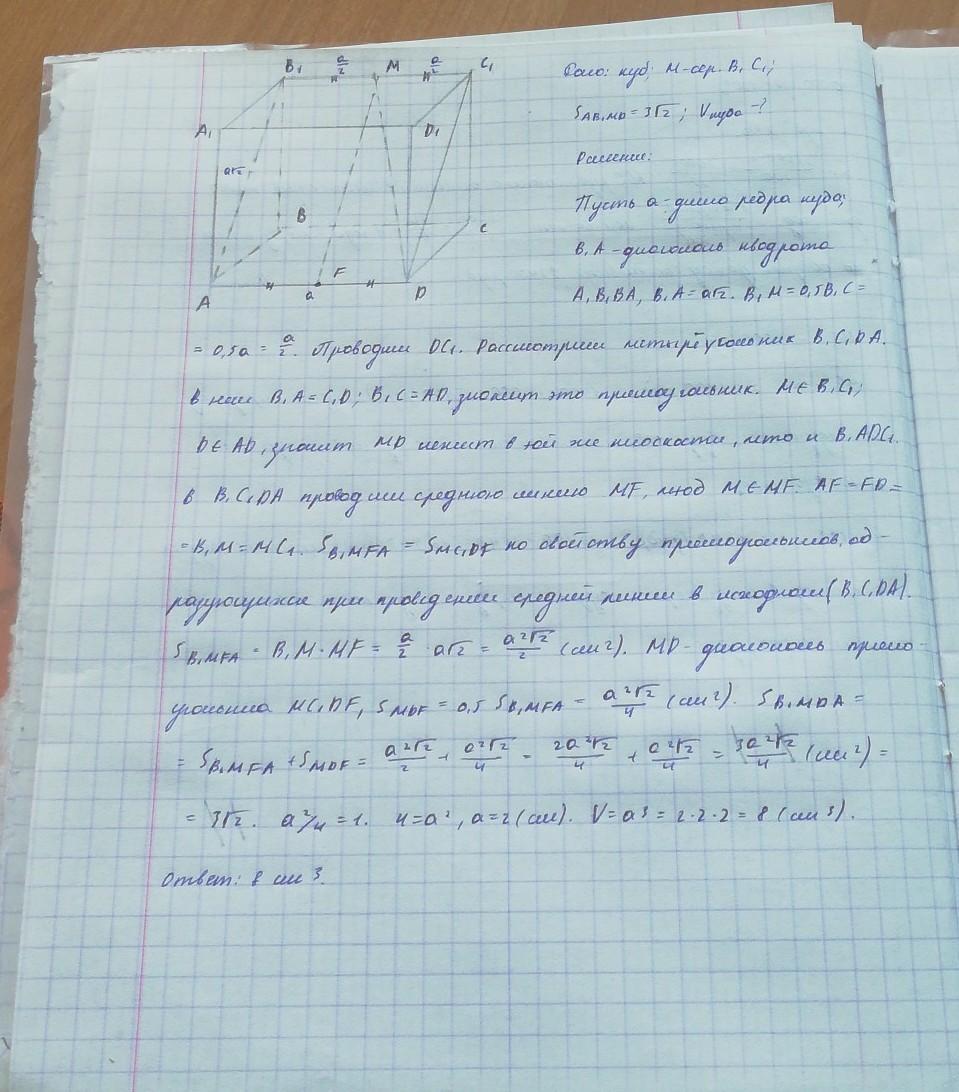 B₁ a/2 M a/2 C₁
A₁ D₁
a√2
B C
F
A a D
Дано: куб; M-сер. B₁C₁;
S AB₁MD = 3√2; Vкуба -?
Решение:
Пусть a - длина ребра куба;
B₁A - диагональ квадрата
A₁B₁BA, B₁A = a√2. B₁M = 0,5B₁C =
= 0,5a = a/2. Проводим DC₁. Рассмотрим четырёхугольник B₁C₁DA.
В нём B₁A = C₁D; B₁C = AD, значит это прямоугольник. M ∈ B₁C₁;
D ∈ AD, значит MD лежит в той же плоскости, что и B₁ADC₁.
В B₁C₁DA проводим среднюю линию MF, M ∈ MF. AF = FD =
= B₁M = MC₁. S B₁MFA = S MC₁DF по свойству прямоугольников, об-
разующихся при проведении средней линии в исходном (B₁C₁DA).
S B₁MFA = B₁M · MF = a/2 · a√2 = a²√2/2 (см²). MD - диагональ прямо-
угольника MC₁DF, S MDF = 0,5 S B₁MFA = a²√2/4 (см²). S B₁MDA =
= S B₁MFA + S MDF = a²√2/2 + a²√2/4 = 2a²√2/4 + a²√2/4 = 3a²√2/4 (см²) =
= 3√2. a²/4 = 1. 4 = a², a = 2 (см). V = a³ = 2·2·2 = 8 (см³).
Ответ: 8 см³.